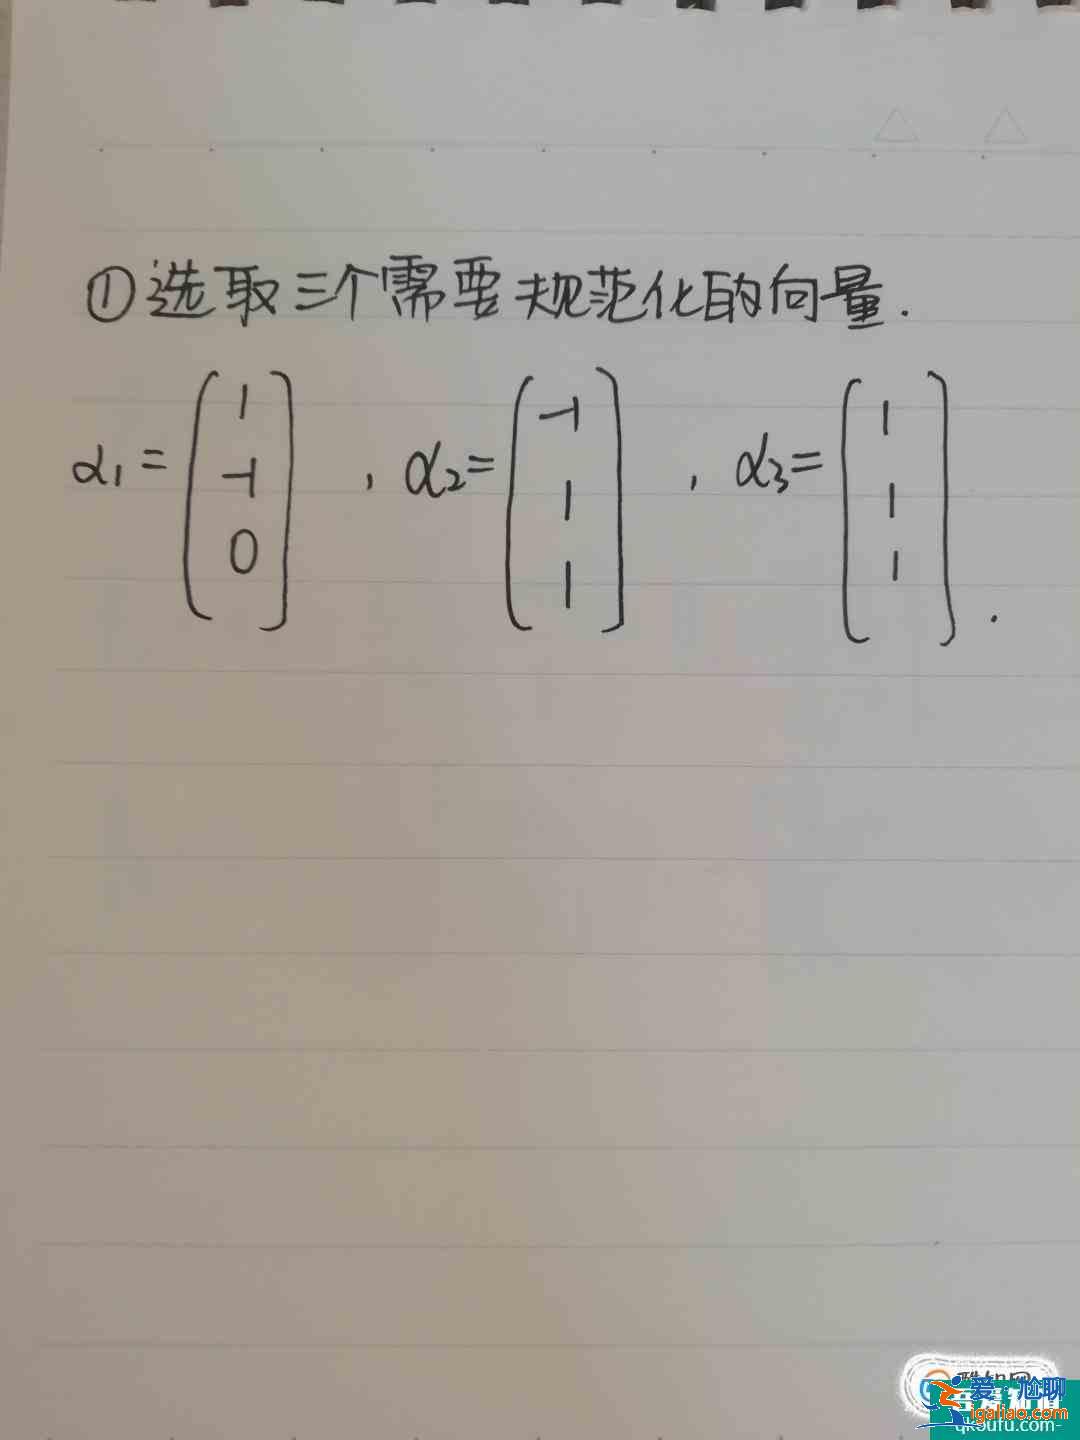 ①选取三个需要规范化的向量.
α₁=(1 -1 0), α₂=(-1 1 1), α₃=(1 1 1).
爱尬聊
igaliao.com
qkoufu.com